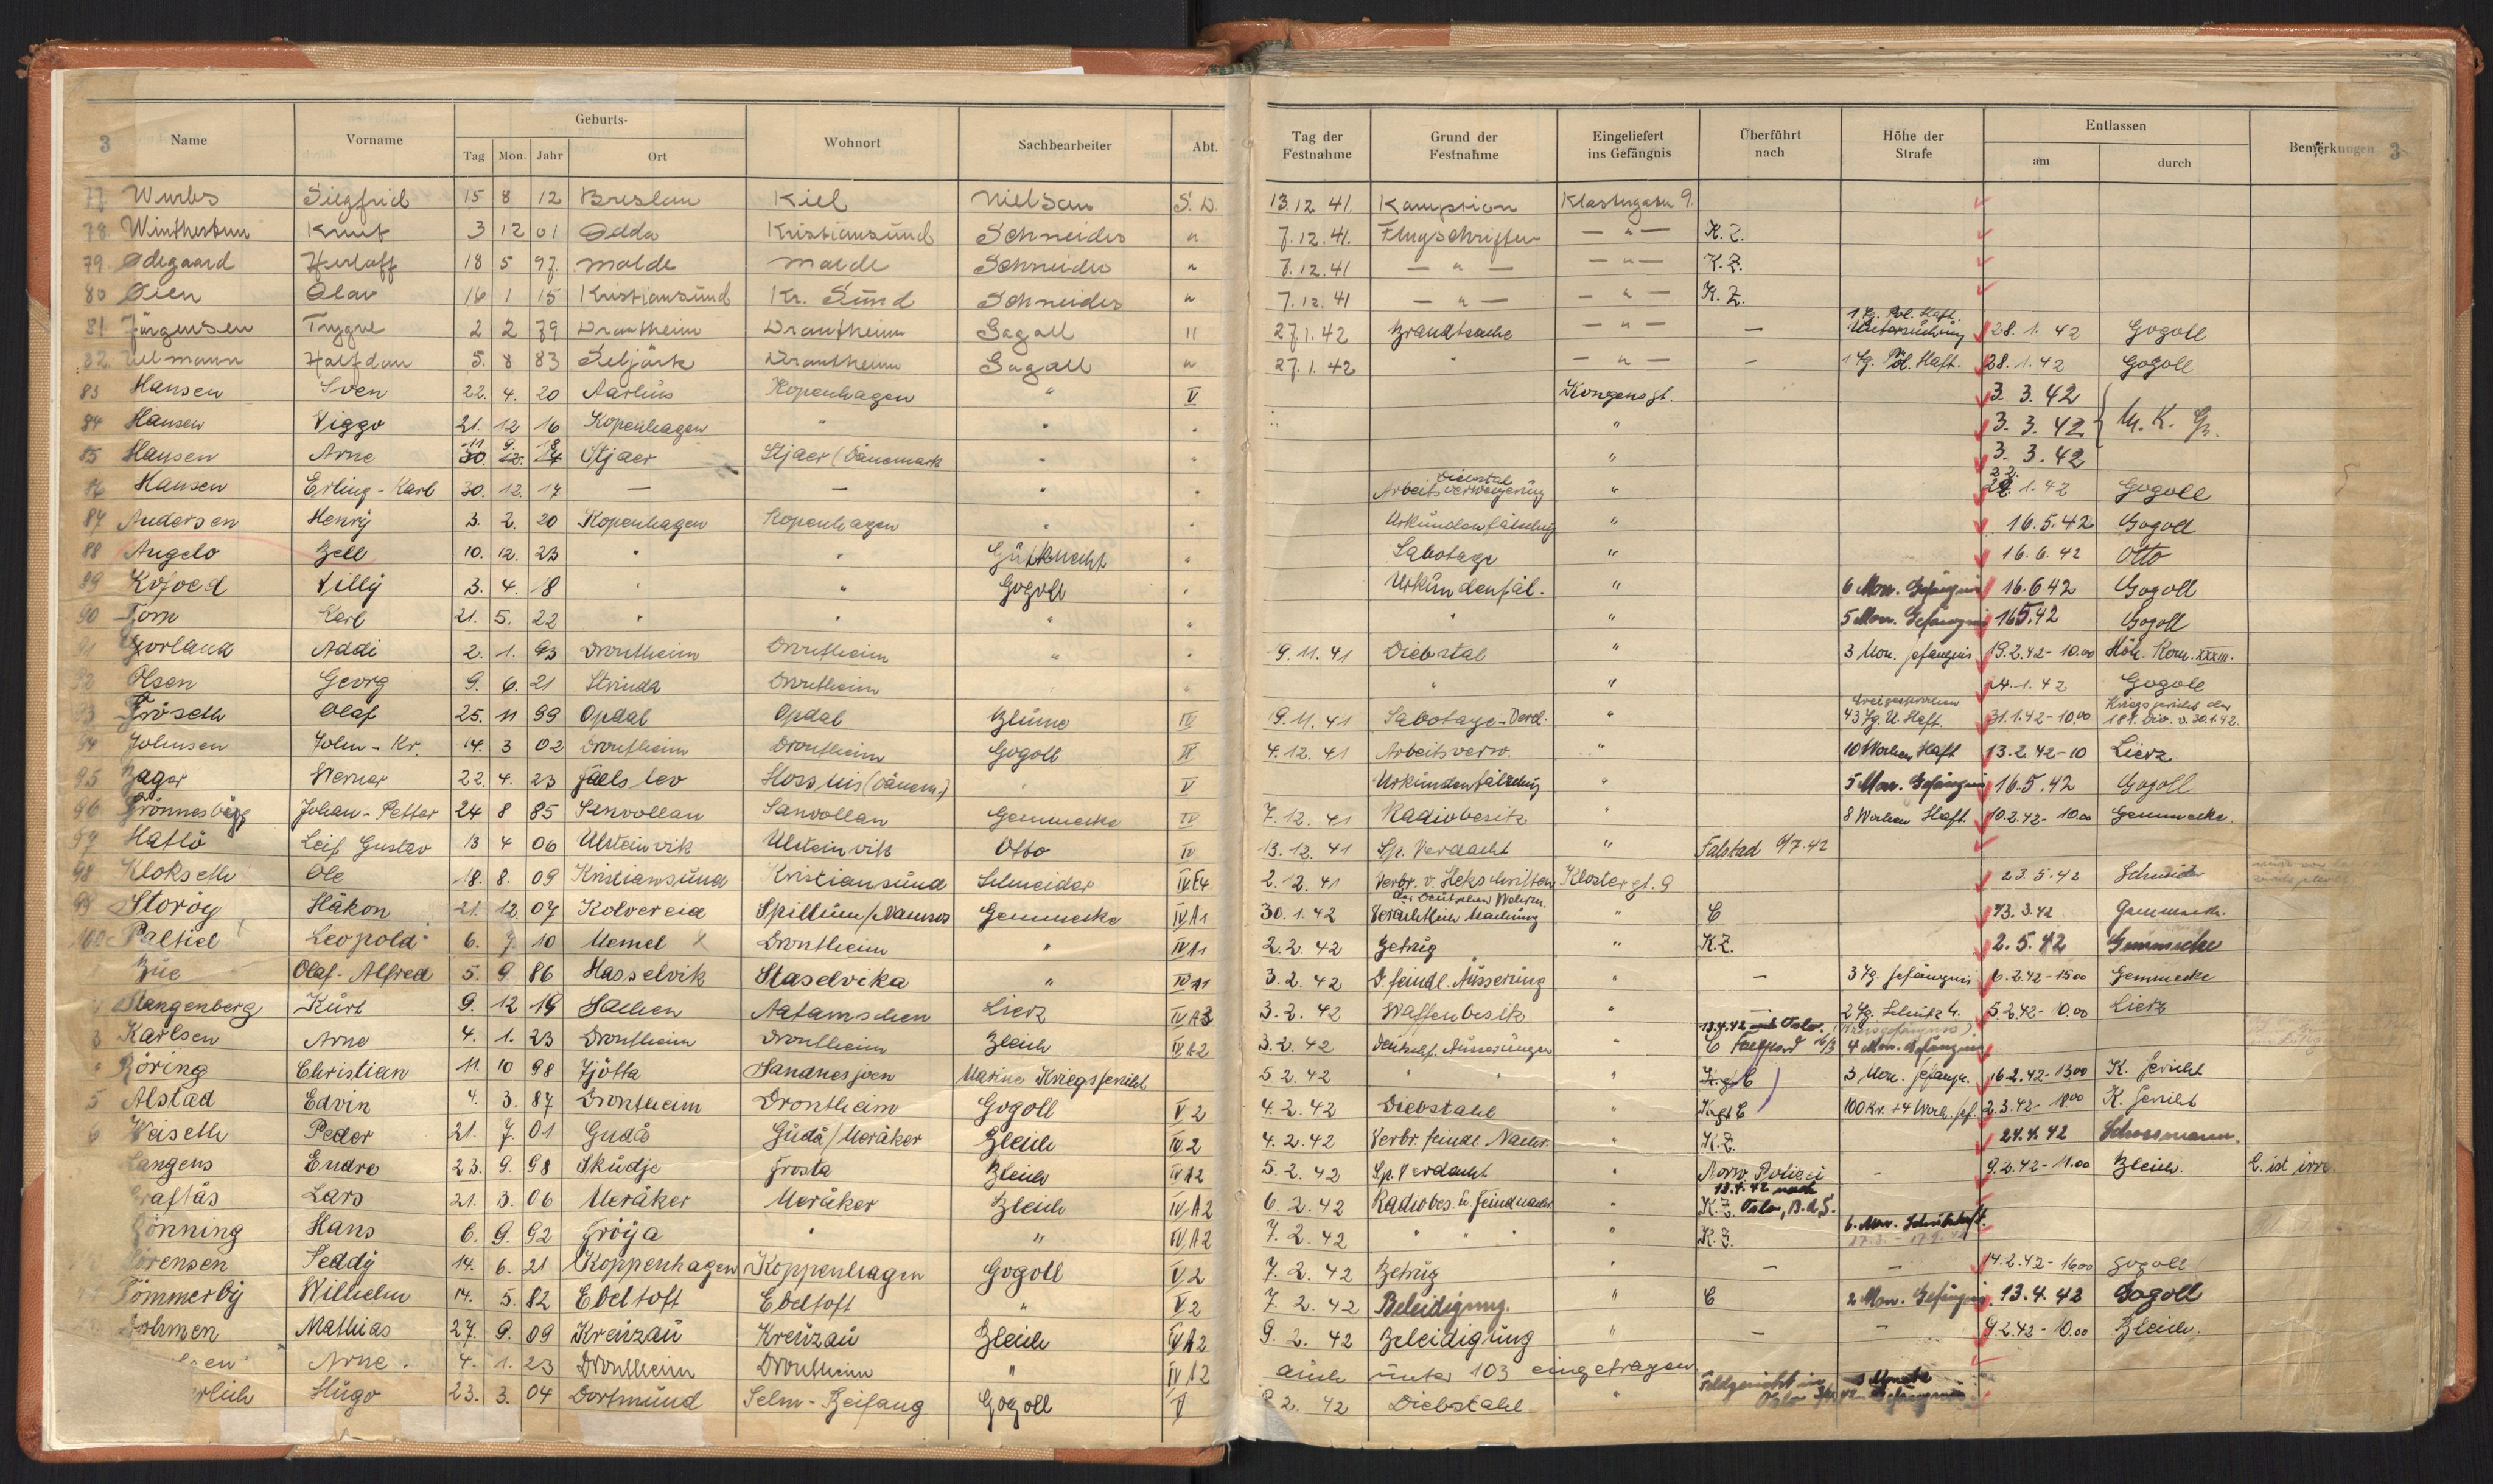 3 Name Vorname Geburts- Wohnort Sachbearbeiter Abt. Tag der Festnahme Grund der Festnahme Eingeliefert ins Gefängnis Überführt nach Höhe der Strafe Entlassen Bemerkungen 3
Tag Mon. Jahr Ort am durch
77 Wurbs Siegfrid 15 8 12 Breslau Kiel Nielsen S.D. 13.12.41. Klostergate 9.
78. Knut 3 12 01 Odda Kristiansund Schneider " 7.12.41. Flugschriften — " — K.Z.
79 Ødegaard Herloff 18 5 97. Molde Molde Schneider " 7.12.41 — " — — " — K.Z.
80 Øien Olav 16 1 15 Kristiansund Kr. Sund Schneider " 7.12.41 — " — — " — K.Z.
81 Jürgensen Trygve 2 2 79 Drontheim Drontheim Gogoll " 27.1.42 Brandsache — " — — 1 Tg. Pol. Haft. Untersuchung 28.1.42 Gogoll
82. Ulmann Halfdan 5. 8 83 Seljörk Drontheim Gogoll " 27.1.42 " — " — — 1 Tg. Pol. Haft. 28.1.42 Gogoll
83 Hansen Sven 22. 4. 20 Aarhus Kopenhagen " V Kongensgt. 3.3.42
84 Hansen Viggo 21. 12 16 Kopenhagen " " " " 3.3.42 M.K.G.
85 Hansen Arne 30. 12. 14 11 9. 18 Stjaer Stjaer (Dänemark " " " 3.3.42
86 Hansen Erling-Karl 30. 12. 17 — — " " Diebstal Arbeitsverweigerung " 22. 1.42 Gogoll
87 Andersen Henry 3. 2. 20 Kopenhagen Kopenhagen " " Urkundenfälschung " 16.5.42 Gogoll
88 Angelo Bell 10. 12. 23 " " Gutknecht " Sabotage " 16.6.42 Otto
89 Kofoed Villy 3. 4. 18 " " Gogoll " Urkundenfäl. " 6 Mon. Gefängnis 16.6 42 Gogoll
90 Tom Karl 21. 5. 22 " " " " " " 5 Mon. Gefängnis 16 5.42 Gogoll
91 Gorland Addi 2. 1. 93 Drontheim Drontheim " " 9.11.41 Diebstal " 3 Mon. Gefängnis 19.2.42-10.00 Höh. Kom. XXXIII.
92 Olsen Georg 9. 6. 21 Strinda Drontheim " " " " 24.1.42 Gogoll
93 Fröseth Olaf 25. 11 99 Opdal Opdal Blume IV 9.11.41 Sabotage-Verd. " freigesprochen 43 Tg. U. Haft. 31.1.42-10.00 Kriegsgericht der 181. Div. v. 30.1.42.
94 Johnsen John-Kr. 14. 3 02 Drontheim Drontheim Gogoll V 4.12.41 Arbeitsverw. " 10 Wochen Haft 13.2.42-10 Lierz
95 Bager Werner 22. 4. 23 Faelslev (Dänem.) " V Urkundenfälschung " 5 Mon. Gefängnis 16.5.42 Gogoll
96 Johan-Petter 24 8 85 Sanvollan Gemmecke IV 7.12.41 Radiobesitz " 8 Wochen Haft 10.2.42-10.00 Gemmecke.
97 Hatlö Leif Gustav 13 4 06 Ulsteinvik Ulsteinvik Otto IV 13.12.41 Sp. Verdacht " Falstad 6/7.42
98 Klokseth Ole 18. 8. 09 Kristiansund Kristiansund Schneider IV E4 2.12.41 Verbr. v. Hetzschriften Klostergt. 9 23.5.42 Schneider
99 Storöy Håkon 21. 12. 07 Kolvereid Spillum/Namsos Gemmecke IV A1 30.1.42 der Deutschen Wehrm. Verächtlich Machung " C 13.3.42 Gemmecke.
100 Paltiel Leopold 6. 7. 10 Memel Drontheim " IV A1 2.2.42 Betrug " K.Z. 2.5.42 Gemmecke
Bue Olaf-Alfred 5. 9 86 Hasselvik Staselvika " IV A1 3.2.42 D. feindl. Äusserung " — 3 Tg. Gefängnis 6.2.42-15.00 Gemmecke
Stangenberg Kurt 9. 12 19 Lierz IV A3 3.2.42 Waffenbesitz " — 2 Tg. Schutzh. 5.2.42-10.00 Lierz
3 Karlsen Arne 4. 1. 23 Drontheim Drontheim Bleich IV A2 3.2.42 Deutschf. Äusserungen " 18.4.42 nach Oslo. 4 Mon. Gefängnis
Röring Christian 11. 10 98 Tjötta Sandnesjoen Marine Kriegsgericht 5.2.42 " " " 3 Mon. Gefängn. 16.2.42-13.00 K. Gericht
5 Alstad Edvin 4. 3. 87 Drontheim Drontheim Gogoll V 2 4.2.42 Diebstahl " 100 Kr. + 4 Woch. Gef. 2.3.42-18.00 K. Gericht
6 Weiseth Peder 21. 7. 01 Gudå Gudå/Meråker Bleich IV 2 4.2.42 Verbr. feindl. Nachr. " K.Z. 24.4.42
Langens Endre 23. 9. 98 Skudje Frosta Bleich IV A2 5.2.42 Sp. Verdacht " Norw. Polizei — 9.2.42-11.00 Bleich. L. ist irre.
Kraftås Lars 21. 3. 06 Meråker Meråker Bleich IV A2 6.2.42 Radiobes. u. Feindnachr. " 18.4.42 nach K.Z. Oslo, B.d.S.
Rönning Hans 6. 9. 92 Fröya " " IV A2 7.2.42 " " " " K.Z. 6. Mon. Schutzhaft.
Sörensen Teddy 14. 6. 21 Koppenhagen Koppenhagen Gogoll V 2 7.2.42 Betrug " — — 14.2.42-16.00 Gogoll
Tömmerby Wilhelm 14. 5. 82 Ebeltoft Ebeltoft " V 2 7.2.42 Beleidigung. " C 2 Mon. Gefängnis. 13.4.42 Gogoll
Bohmen Mathias 27. 9. 09 Kreuzau Kreuzau Bleich IV A2 9.2.42 Beleidigung " — — 9.2.42-10.00 Bleich.
Arne. 4. 1. 23 Drontheim Drontheim " IV A2 auch unter 103 eingetragen
erlich Hugo 23. 3. 04 Dortmund Selm-Beifang Gogoll V 2. 42 Diebstahl " Feldgericht in Oslo